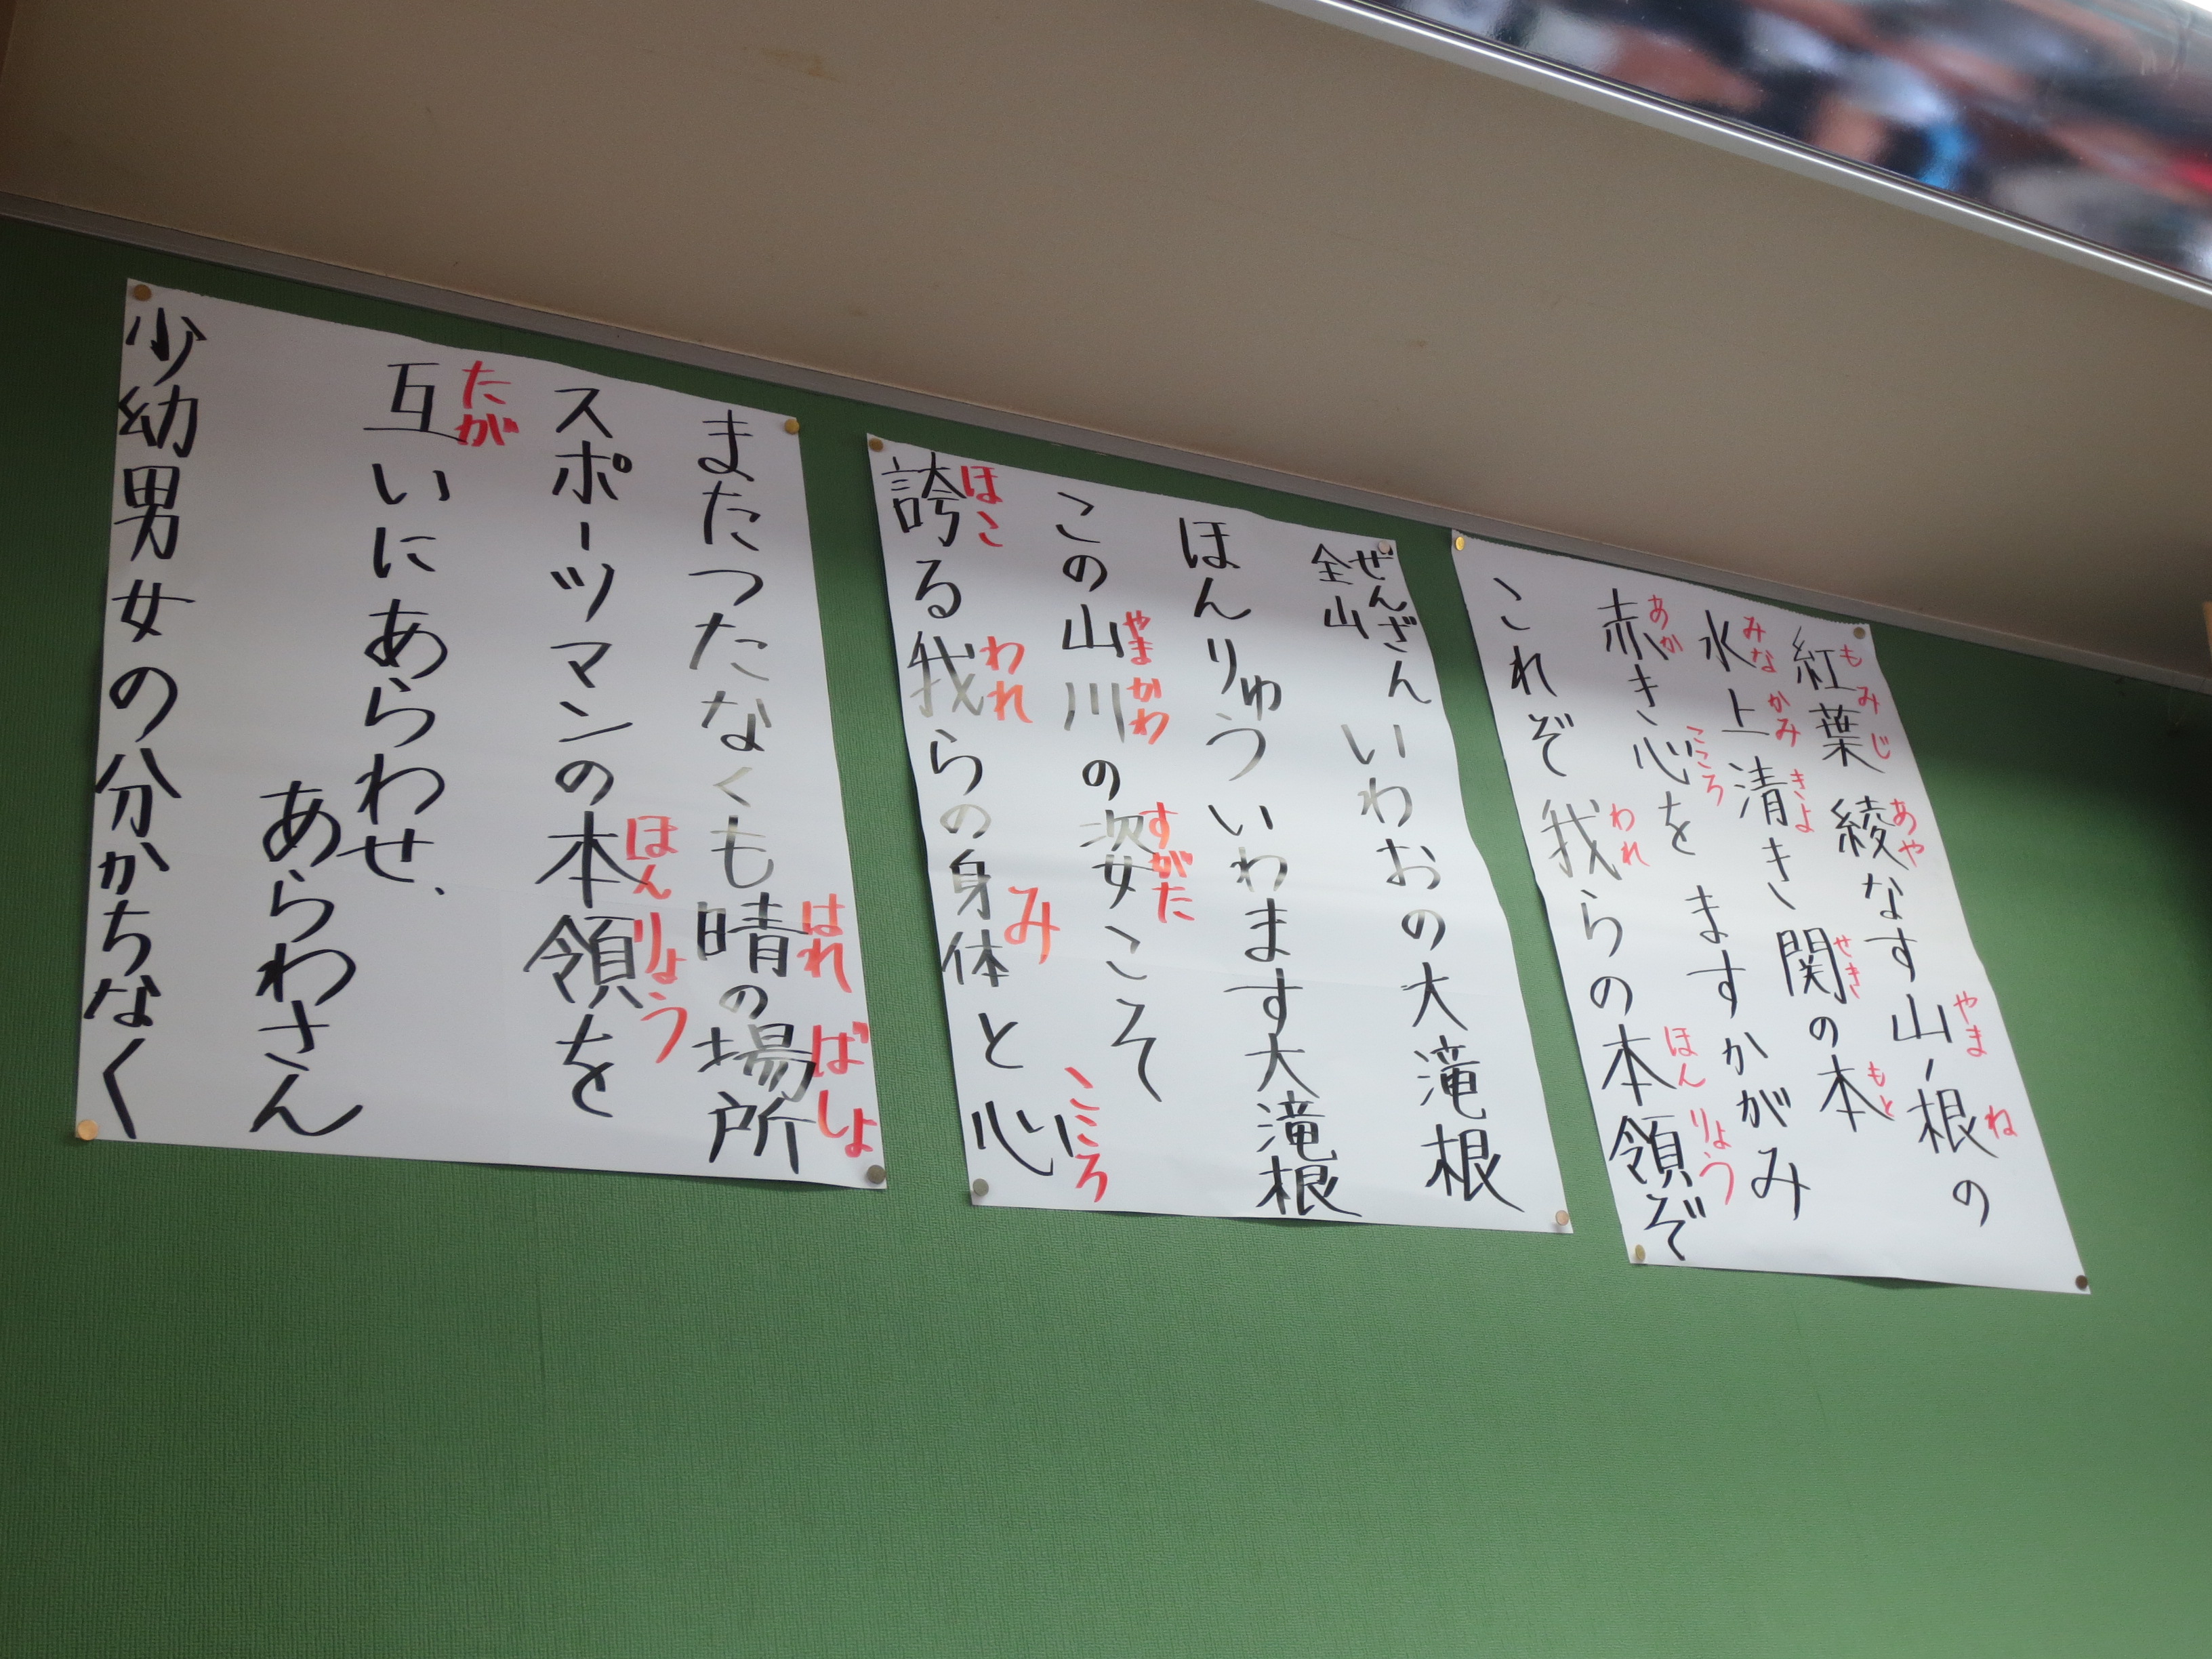 もみじ あや やま ね
紅葉 綾なす山ノ根の
みなかみ きよ せき もと
水上清き関の本
あか こころ
赤き心を ますかがみ
われ ほんりょう
これぞ 我らの本領ぞ
ぜんざん いわおの大滝根
全山
ほんりゅう いわます大滝根
やま かわ すがた
この山川の姿こそ
ほこ われ み こころ
誇る我らの身体と心
はれ ばしょ
またつたなくも晴の場所
ほんりょう
スポーツマンの本領を
たが
互いにあらわせ、
あらわさん
少幼男女の分かちなく